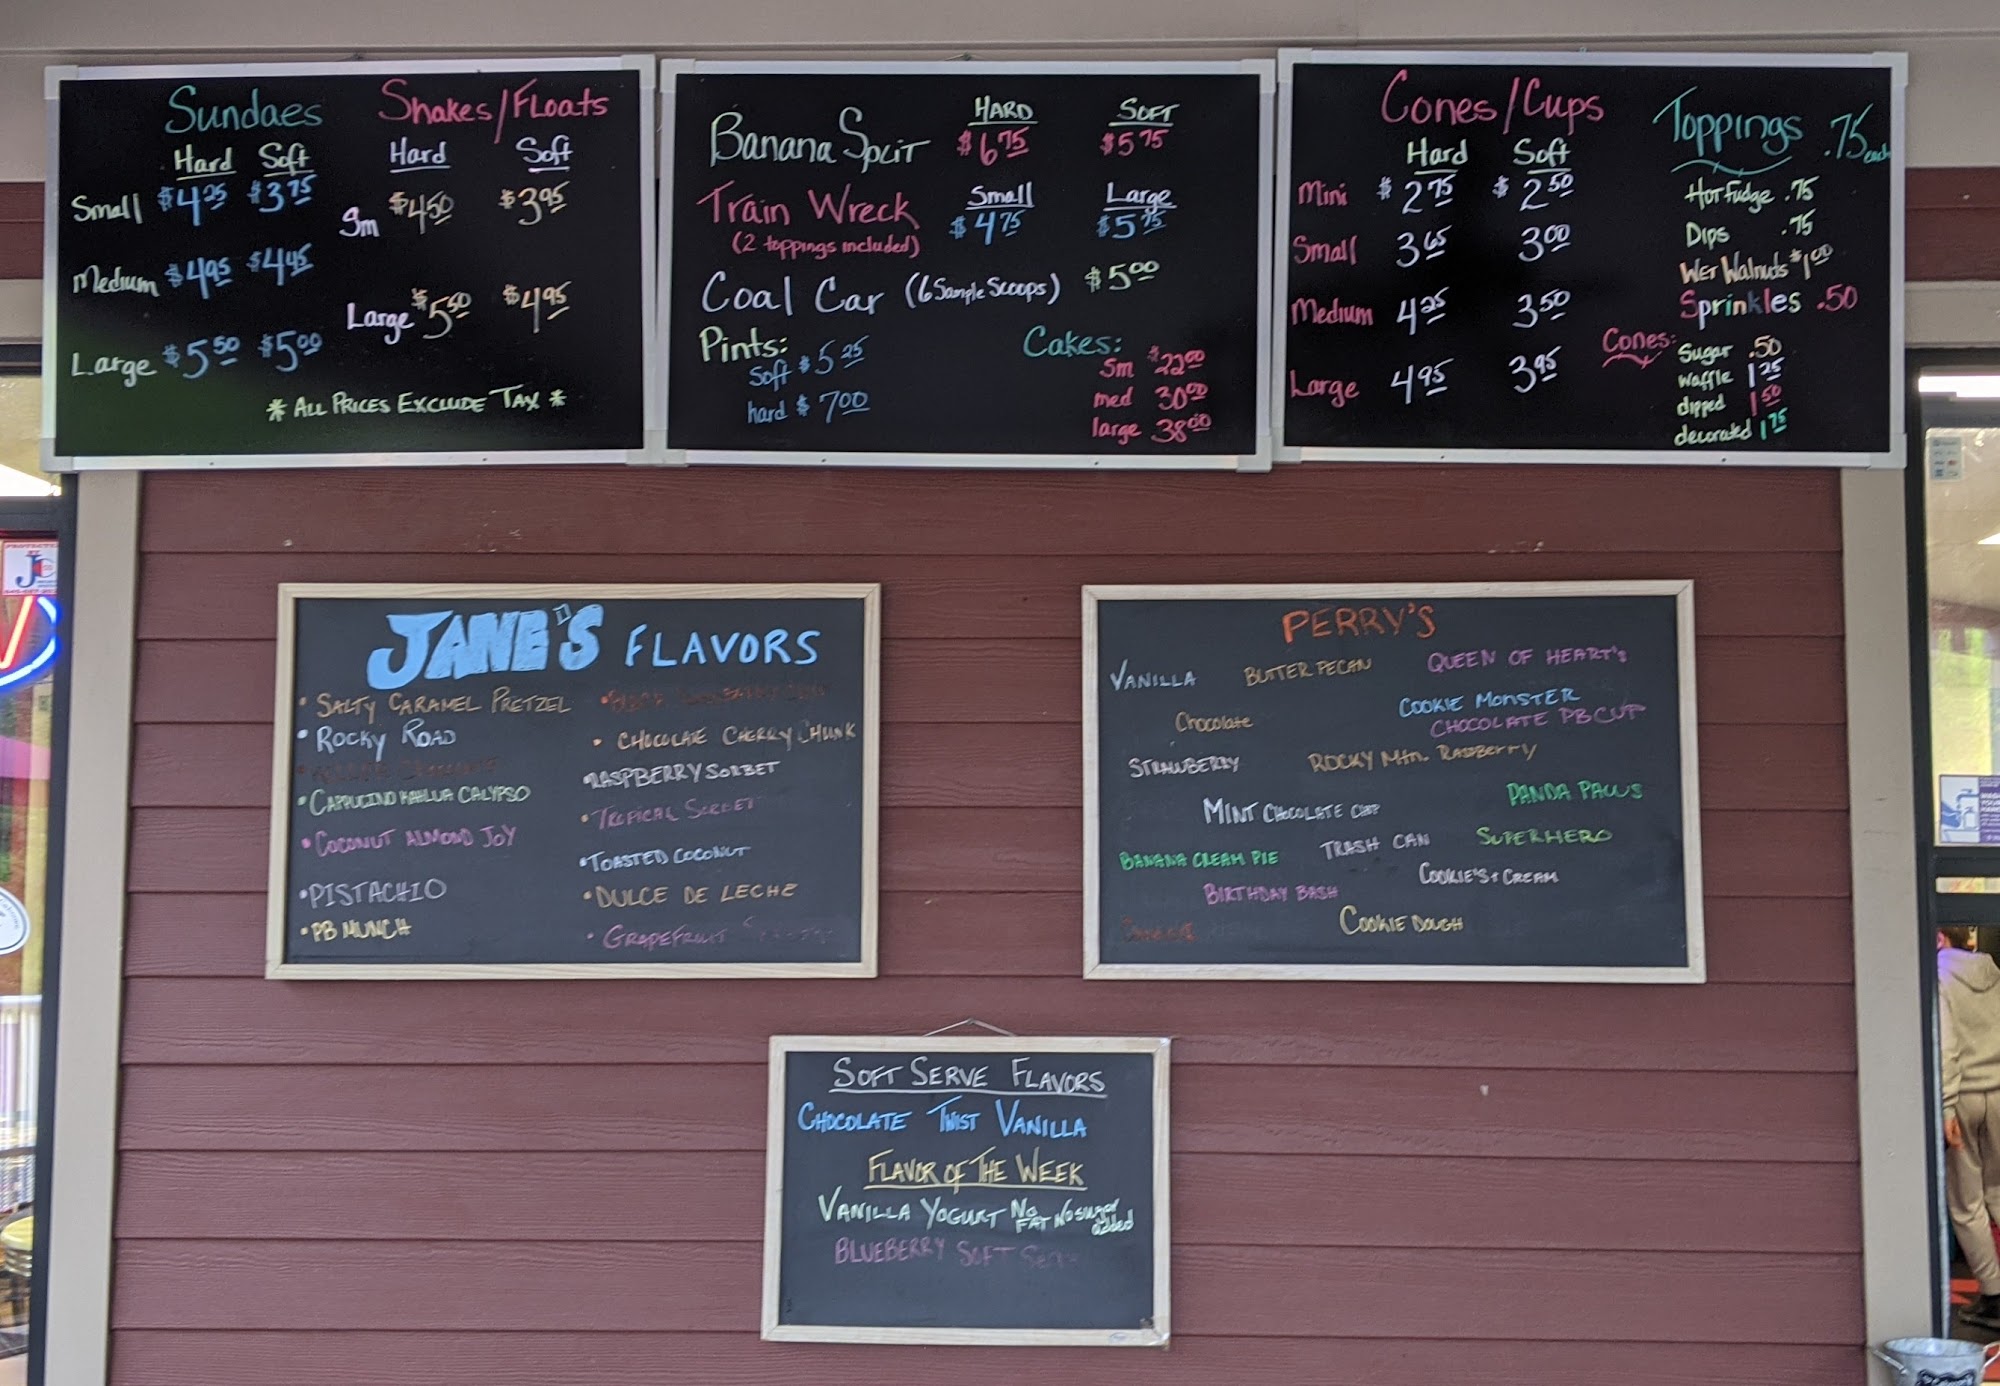 Sundaes
Hard Soft
Small $4.25 $3.75
Medium $4.95 $4.45
Large $5.50 $5.00
Shakes/Floats
Hard Soft
Sm $4.50 $3.95
Large $5.50 $4.95
* All Prices Exclude Tax *
HARD SOFT
Banana Split $6.75 $5.75
Train Wreck Small Large
(2 toppings included) $4.75 $5.75
Coal Car (6 Sample Scoops) $5.00
Pints:
Soft $5.25
hard $7.00
Cakes:
Sm $22.00
med 30.00
large 38.00
Cones/Cups
Hard Soft
Mini $2.75 $2.50
Small 3.65 3.00
Medium 4.25 3.50
Large 4.95 3.95
Toppings .75 each
Hot Fudge .75
Dips .75
Wet Walnuts $1.00
Sprinkles .50
Cones: Sugar .50
waffle 1.25
dipped 1.50
decorated 1.75
JANE'S FLAVORS
• SALTY CARAMEL PRETZEL
• ROCKY ROAD
• CAPPUCINO KAHLUA CALYPSO
• COCONUT ALMOND JOY
• PISTACHIO
• PB MUNCH
• CHOCOLATE CHERRY CHUNK
• RASPBERRY SORBET
• TROPICAL SORBET
• TOASTED COCONUT
• DULCE DE LECHE
• GRAPEFRUIT
PERRY'S
VANILLA BUTTER PECAN QUEEN OF HEART'S
COOKIE MONSTER
Chocolate CHOCOLATE PB CUP
STRAWBERRY ROCKY Mtn. RASPBERRY
MINT CHOCOLATE CHIP PANDA PAWS
BANANA CREAM PIE TRASH CAN SUPERHERO
BIRTHDAY BASH COOKIE'S + CREAM
COOKIE DOUGH
SOFT SERVE FLAVORS
CHOCOLATE TWIST VANILLA
FLAVOR OF THE WEEK
VANILLA YOGURT NO FAT NO sugar added
BLUEBERRY SOFT Serv